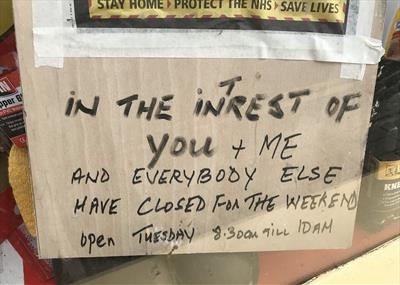 STAY HOME PROTECT THE NHS SAVE LIVES
iN THE iNTREST OF
YOU + ME
AND EVERYBODY ELSE
HAVE CLOSED FOR THE WEEKEND
open TUESDAY 8.30am TiLL 10AM